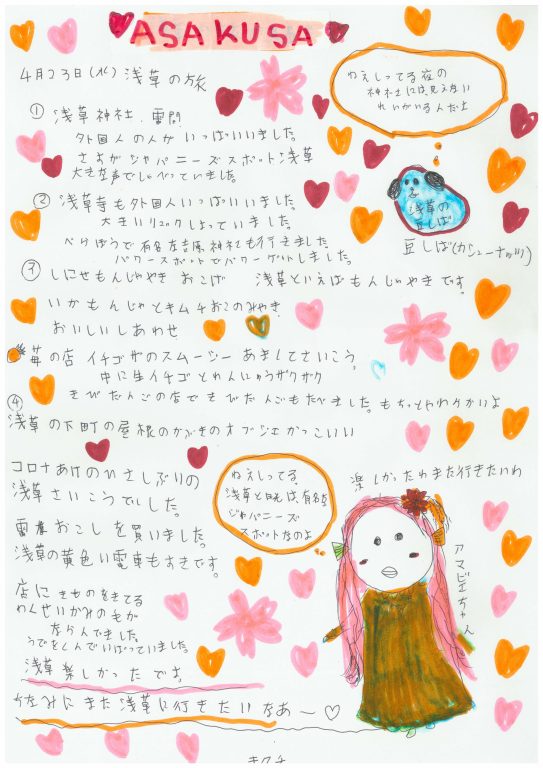 ASAKUSA
4月23日(水)浅草の旅
ねえしってる夜の
神社には見えない
れいがいるんだよ
① 浅草神社.雷門
外国人の人がいっぱいいました。
さすがジャパニーズスポット浅草
大きな声でしゃべっていました。
浅草の
豆しば
豆しば(カシューナッツ)
② 浅草寺も外国人いっぱいいました。
大きいリュックしょっていました。
べらぼうで有名な吉原神社も行きました。
パワースポットでパワーゲットしました。
③ しにせもんじゃやき おこげ 浅草といえばもんじゃやきです。
いかもんじゃとキムチおこのみやき
おいしいしあわせ
苺の店 イチゴザのスムージー あまくてさいこう。
中に生イチゴとれんにゅうザクザク
④ きびだんごの店できびだんごもたべました。もちっとかわかいよ
浅草の下町の屋根のかぶきのオブジェかっこいい
コロナあけのひさしぶりの
浅草さいこうでした。
雷おこしを買いました。
浅草の黄色い電車もすきです。
ねえしってる。
浅草と日光は有名な
ジャパニーズ
スポットなのよ
楽しかったわまた行きたいわ
アマビエちゃん
店にきものをきてる
わんせいかみの毛が
ならんでました
うでをくんでいばっていました。
浅草楽しかったです。
休みにまた浅草に行きたいなあー♡
キクチ